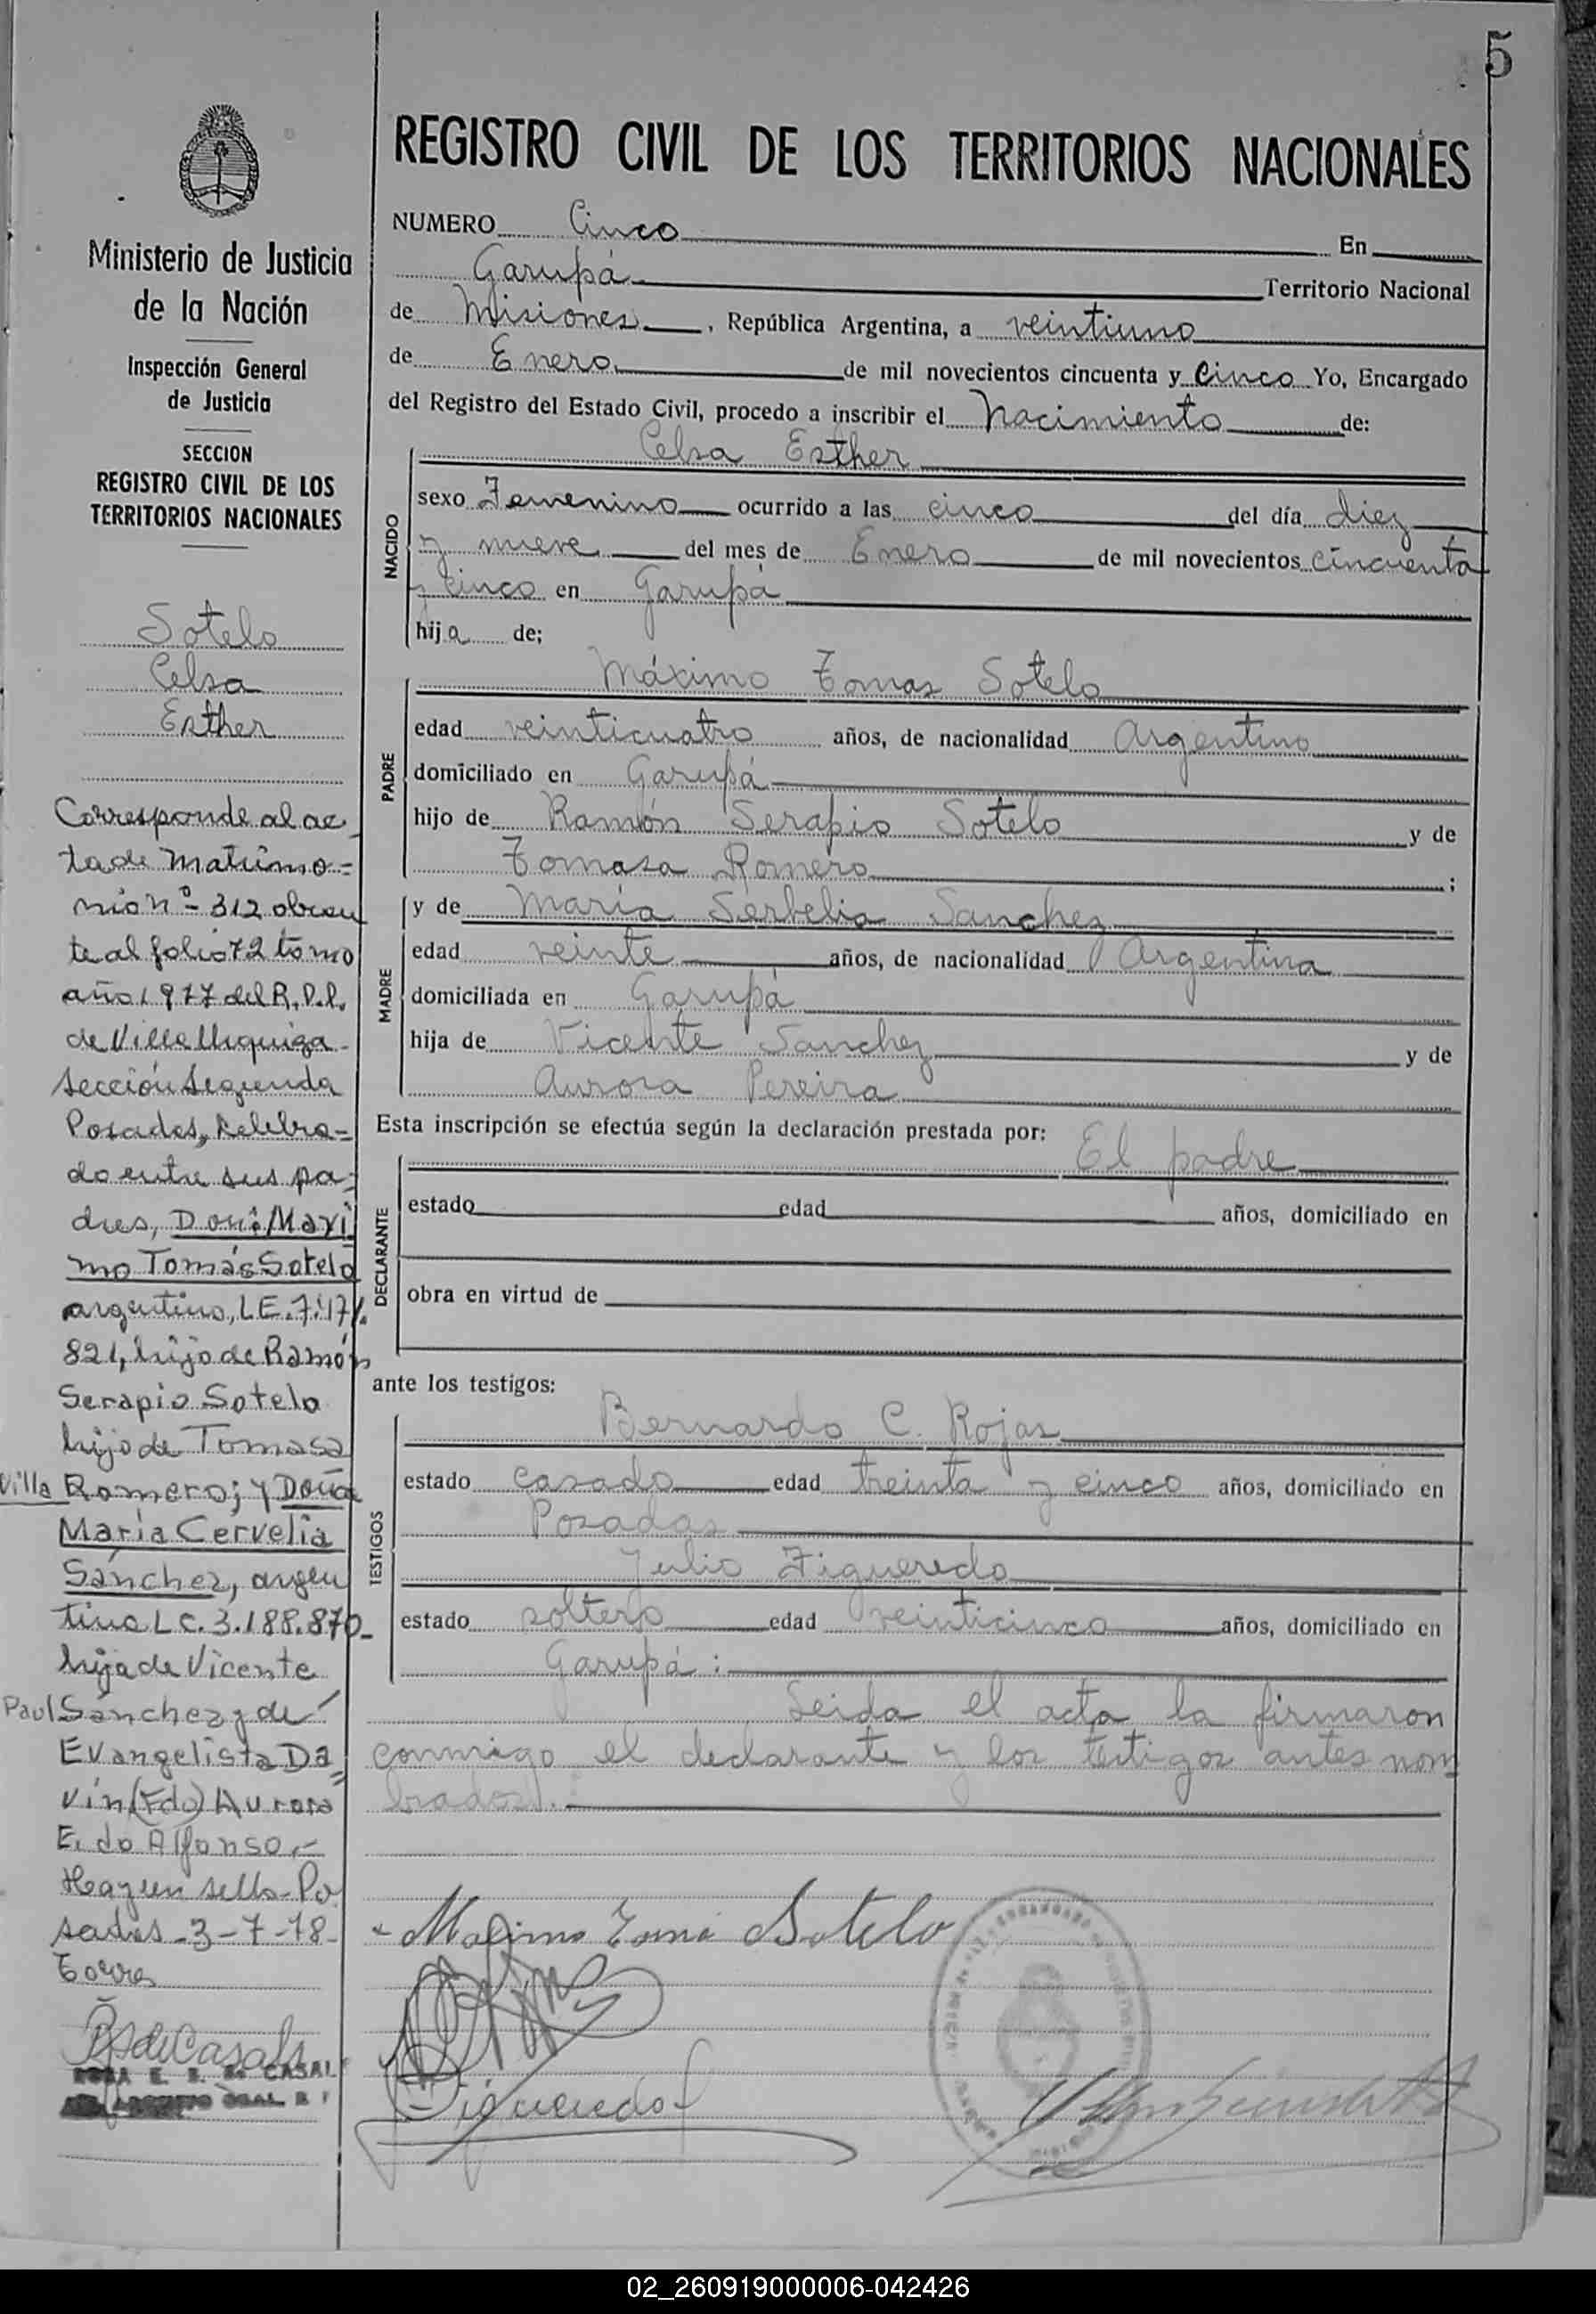 5
Ministerio de Justicia
de la Nación
Inspección General
de Justicia
SECCION
REGISTRO CIVIL DE LOS
TERRITORIOS NACIONALES
Sotelo
Celsa
Esther
Corresponde al ac
ta de Matrimo=
nio nº 312 obran
te al folio 72 tomo
año 1977 del R.P.P.
de Villa Urquiza-
sección segunda
Posadas, celebra=
do entre sus pa=
dres, Don: Maxi
mo Tomás Sotelo
argentino, L.E. 7.474.
821, hijo de Ramón
Serapio Sotelo
hijo de Tomasa
Villa Romero; y Doña
María Cervelia
Sánchez, argen
tina L.C. 3.188.870-
hija de Vicente
Paul Sánchez y de
Evangelista Da
vín (Fdo) Aurora
E. do Alfonso.-
Hay un sello-Po
sadas-3-7-78-
Torres
CASAL
REGISTRO CIVIL DE LOS TERRITORIOS NACIONALES
NUMERO Cinco En
Garupá Territorio Nacional
de Misiones, República Argentina, a veintiuno
de Enero de mil novecientos cincuenta y Cinco Yo, Encargado
del Registro del Estado Civil, procedo a inscribir el Nacimiento de:
NACIDO
Celsa Esther
sexo Femenino ocurrido a las cinco del día diez
y nueve del mes de Enero de mil novecientos cincuenta
y cinco en Garupá
hija de;
PADRE
Máximo Tomas Sotelo
edad veinticuatro años, de nacionalidad Argentino
domiciliado en Garupá
hijo de Ramón Serapio Sotelo y de
Tomasa Romero ;
MADRE
y de María Serbelia Sanchez
edad veinte años, de nacionalidad Argentina
domiciliada en Garupá
hija de Vicente Sanchez y de
Aurora Pereira
Esta inscripción se efectúa según la declaración prestada por:
DECLARANTE
El padre
estado edad años, domiciliado en
obra en virtud de
ante los testigos:
TESTIGOS
Bernardo C. Rojas
estado casado edad treinta y cinco años, domiciliado en
Posadas
Julio Figueredo
estado soltero edad veinticinco años, domiciliado en
Garupá:
Leida el acta la firmaron
conmigo el declarante y los testigos antes nom
brados.
Maximo Toma Sotelo
Figueredo
02_260919000006-042426